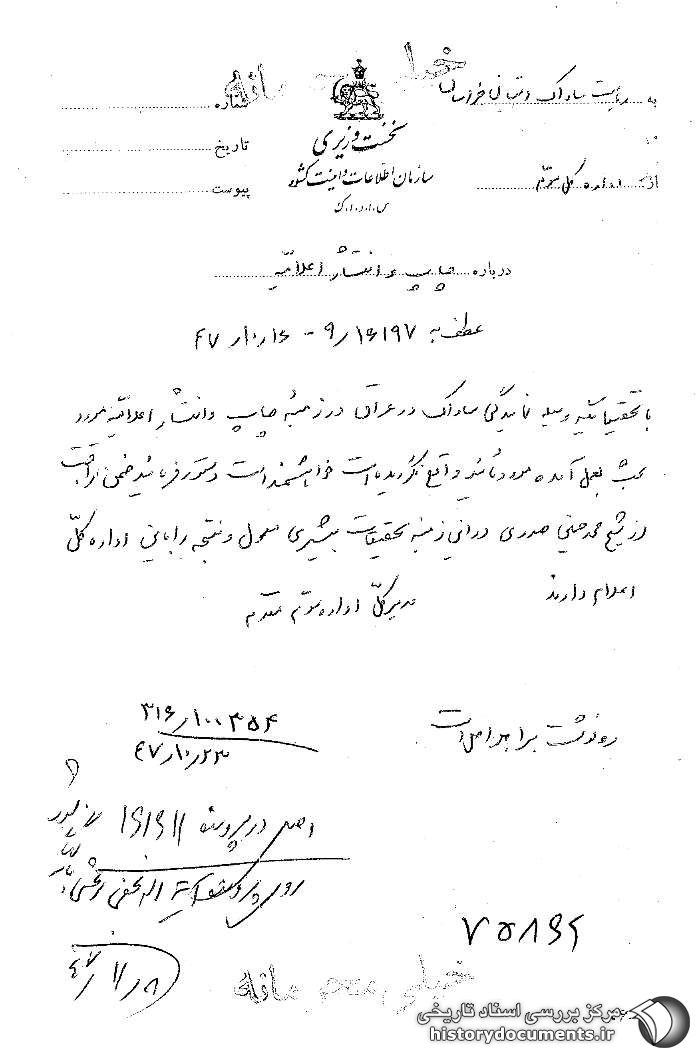 خیلی محرمانه
به ریاست ساواک استان خراسان
شماره
نخست وزیری
تاریخ
سازمان اطلاعات و امنیت کشور
از اداره کل سوم
پیوست
س.ا.و.ا.ک
درباره چاپ و انتشار اعلامیه
عطف به ۹/۱۶۱۹۷ - ۴۷/۱۰/۱۶
با تحقیقاتیکه وسیله نمایندگی ساواک در عراق در زمینه چاپ و انتشار اعلامیه مورد
بحث بعمل آمده مورد تأیید واقع نگردیده است خواهشمند است دستور فرمائید ضمن مراقبت
از شیخ محمد حسنی صدری در این زمینه تحقیقات بیشتری معمول و نتیجه را باین اداره کل
اعلام دارند
مدیر کل اداره سوم مقدم
۳۱۶/۱۰۰۳۵۴
۴۷/۱۰/۲۳
رونوشت برابر اصل است
اصل در پرونده ۱۶۱۶۱۱
روی پرونده
۷۵۸۶۶
۴۷/۱۱/۸
خیلی محرمانه
مرکز بررسی اسناد تاریخی
historydocuments.ir